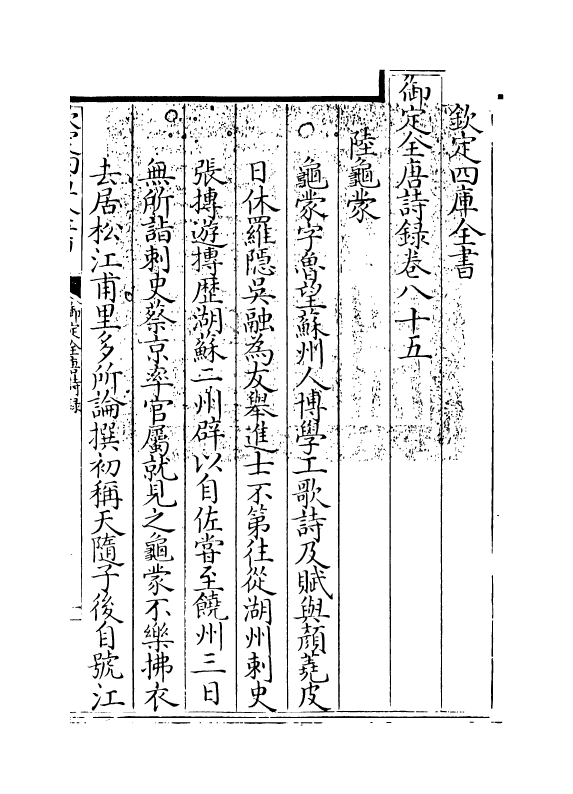 欽定四庫全書
御定全唐詩錄卷八十五
陸龜蒙
龜蒙字魯望蘇州人博學工歌詩及賦與顏蕘皮
日休羅隠吳融為友舉進士不第往從湖州刺史
張摶遊摶歴湖蘇二州辟以自佐甞至饒州三日
無所詣刺史蔡京率官屬就見之龜蒙不樂拂衣
去居松江甫里多所論撰初稱天隨子後自號江
欽定四庫全書
御定全唐詩録
一